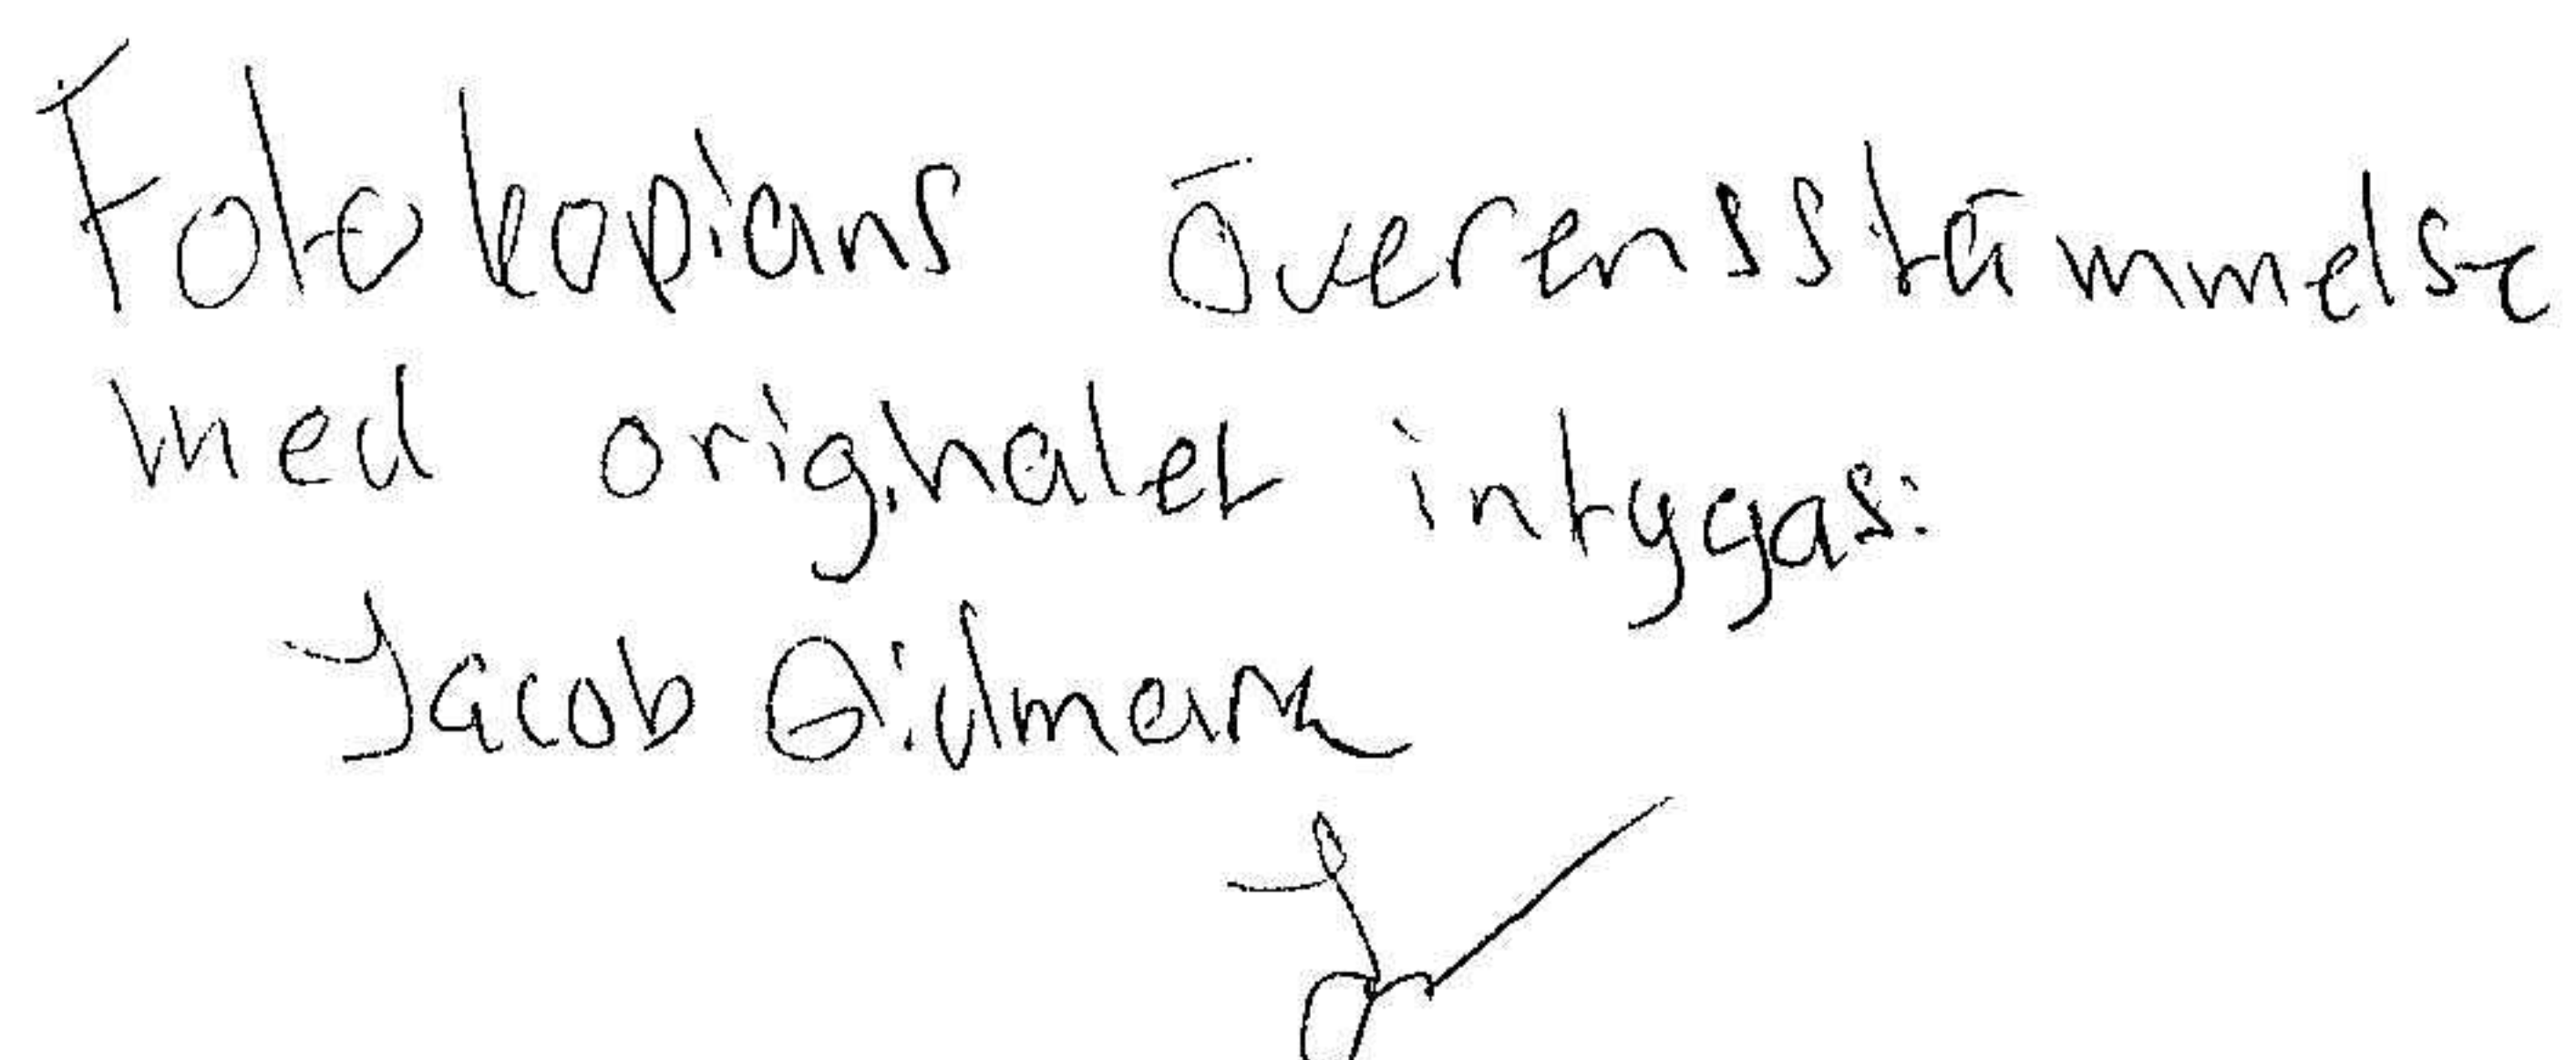 Fotokopians överensstämmelse
med originalet intygas:
Jacob Gidmark